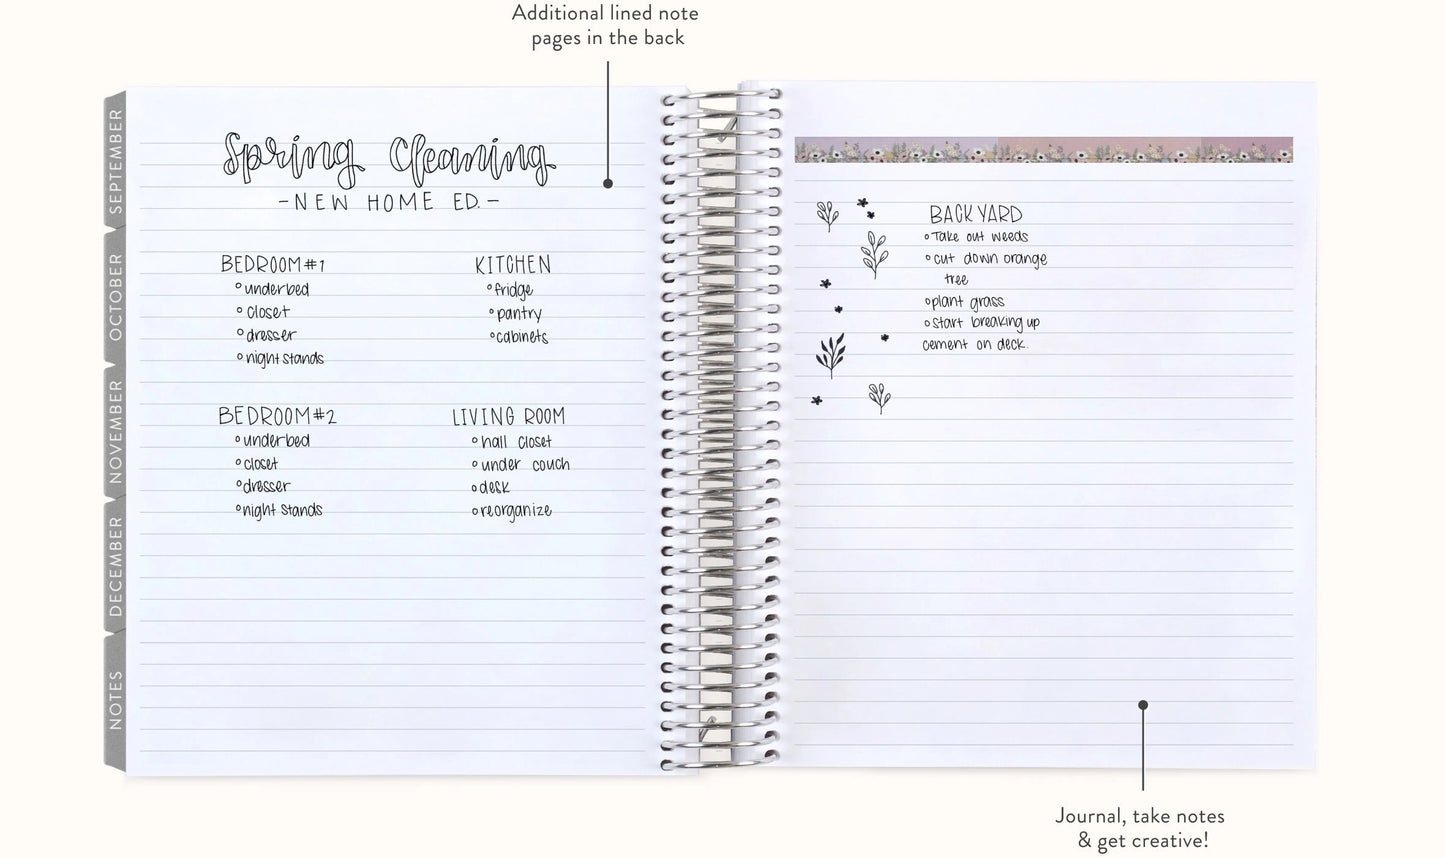 Additional lined note
pages in the back
SEPTEMBER
OCTOBER
NOVEMBER
DECEMBER
NOTES
Spring Cleaning
-NEW HOME ED.-
BEDROOM#1
underbed
closet
dresser
night stands
KITCHEN
fridge
pantry
cabinets
BEDROOM#2
underbed
closet
dresser
night stands
LIVING ROOM
hall closet
under couch
desk
reorganize
BACKYARD
Take out weeds
cut down orange
tree
plant grass
start breaking up
cement on deck.
Journal, take notes
& get creative!